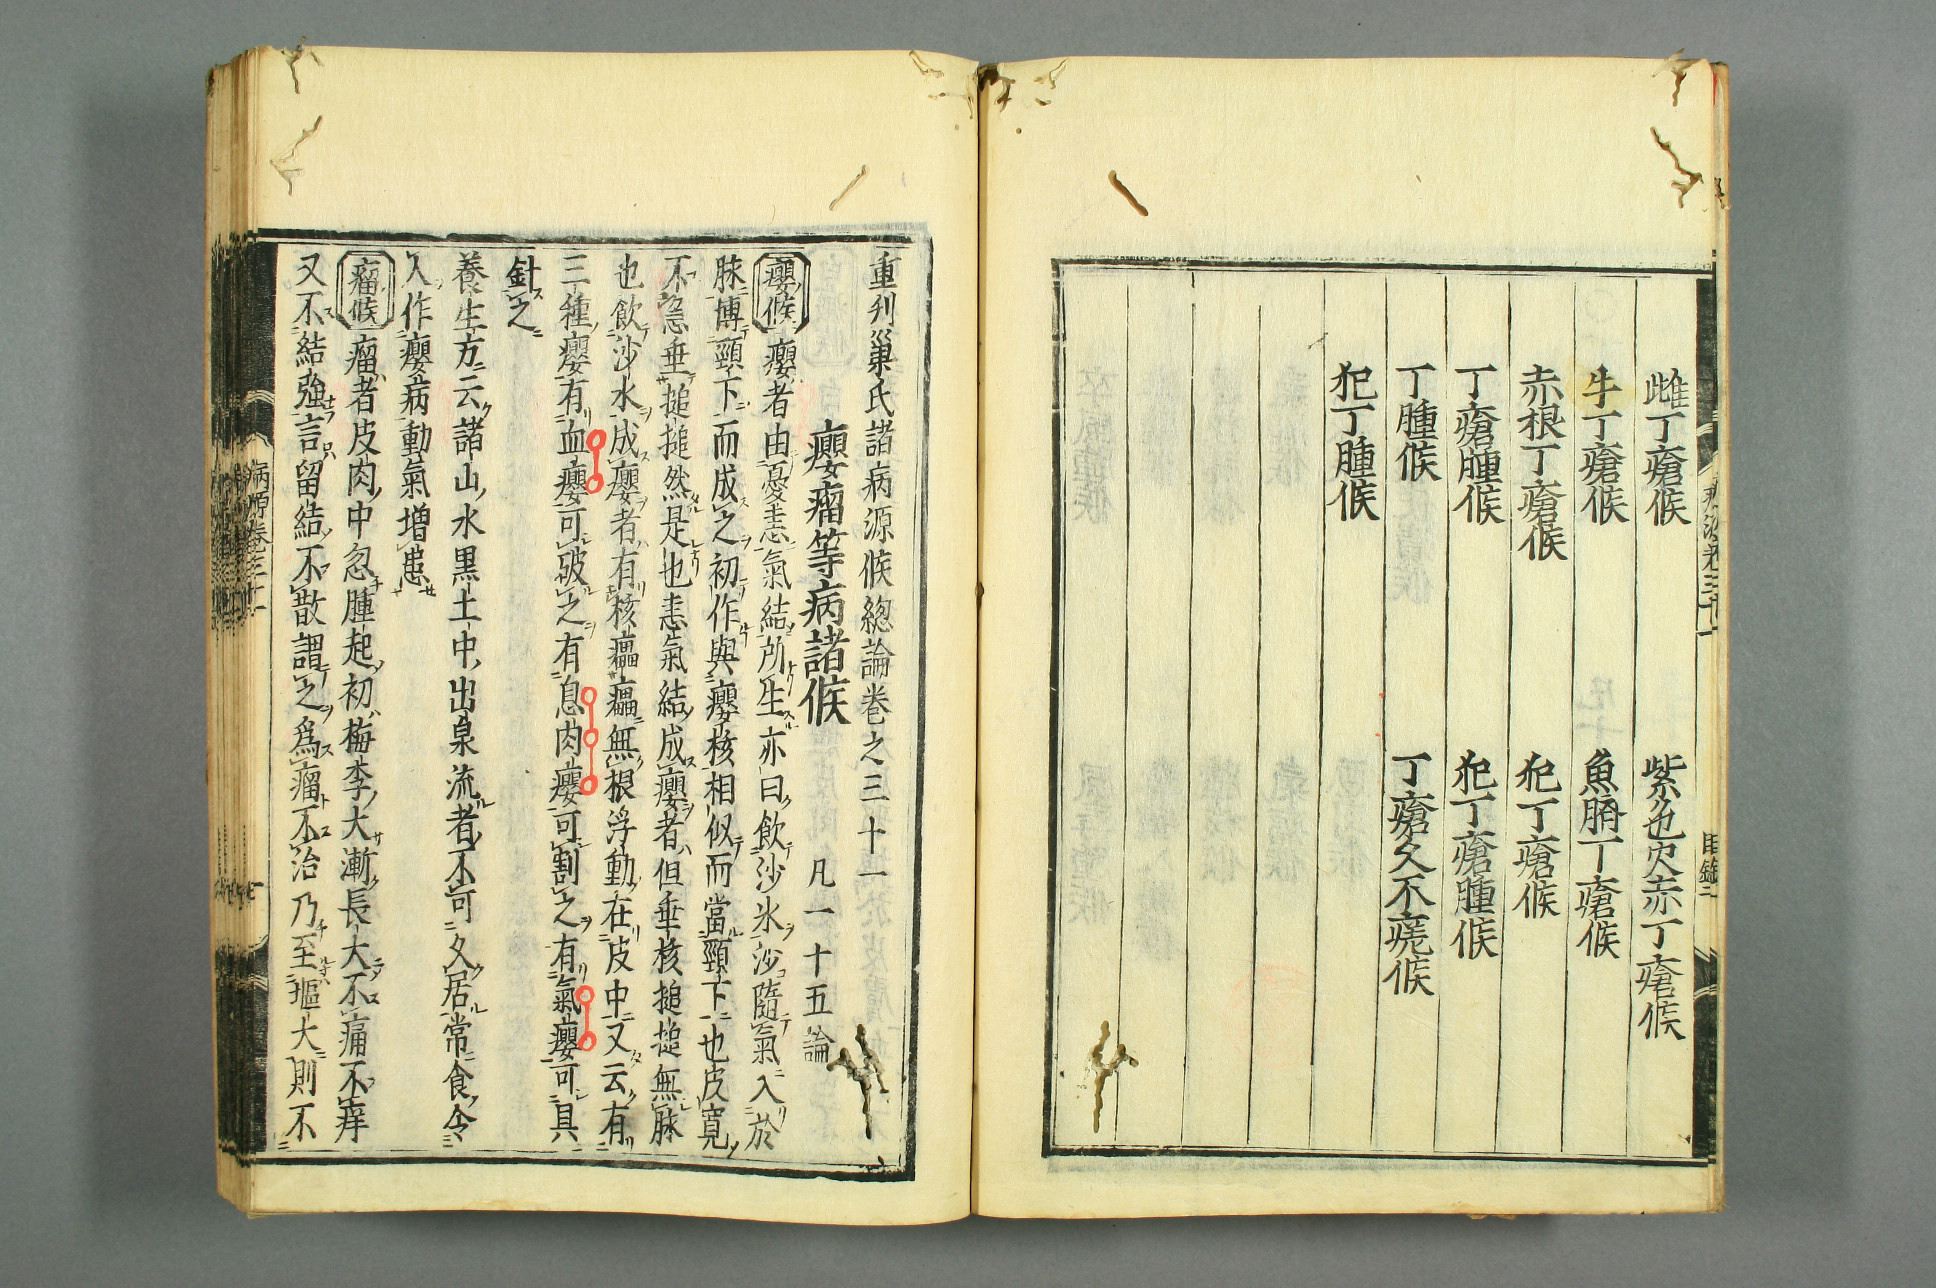 雌丁瘡候 紫色火赤丁瘡候
牛丁瘡候 魚臍丁瘡候
赤根丁瘡候 犯丁瘡候
丁瘡腫候 犯丁瘡腫候
丁腫候 丁瘡久不瘥候
犯丁腫候
重刋巢氏諸病源候總論卷之三十一
癭瘤等病諸候 凡一十五論
癭候 癭者由憂恚氣結所生亦曰飲沙水沙隨氣入於
脉搏頸下而成之初作與癭核相似而當頸下也皮寬
不急垂搥搥然是也恚氣結成癭者但垂核搥搥無脉
也飲沙水成癭者有核㿈㿈無根浮動在皮中又云有
三種癭有血癭可破之有息肉癭可割之有氣癭可具
針之
養生方云諸山水黑土中出泉流者不可久居常食令
人作癭病動氣増患
瘤候 瘤者皮肉中忽腫起初梅李大漸長大不痛不痒
又不結強言留結不散謂之爲瘤不治乃至㙋大則不
病源卷三十一